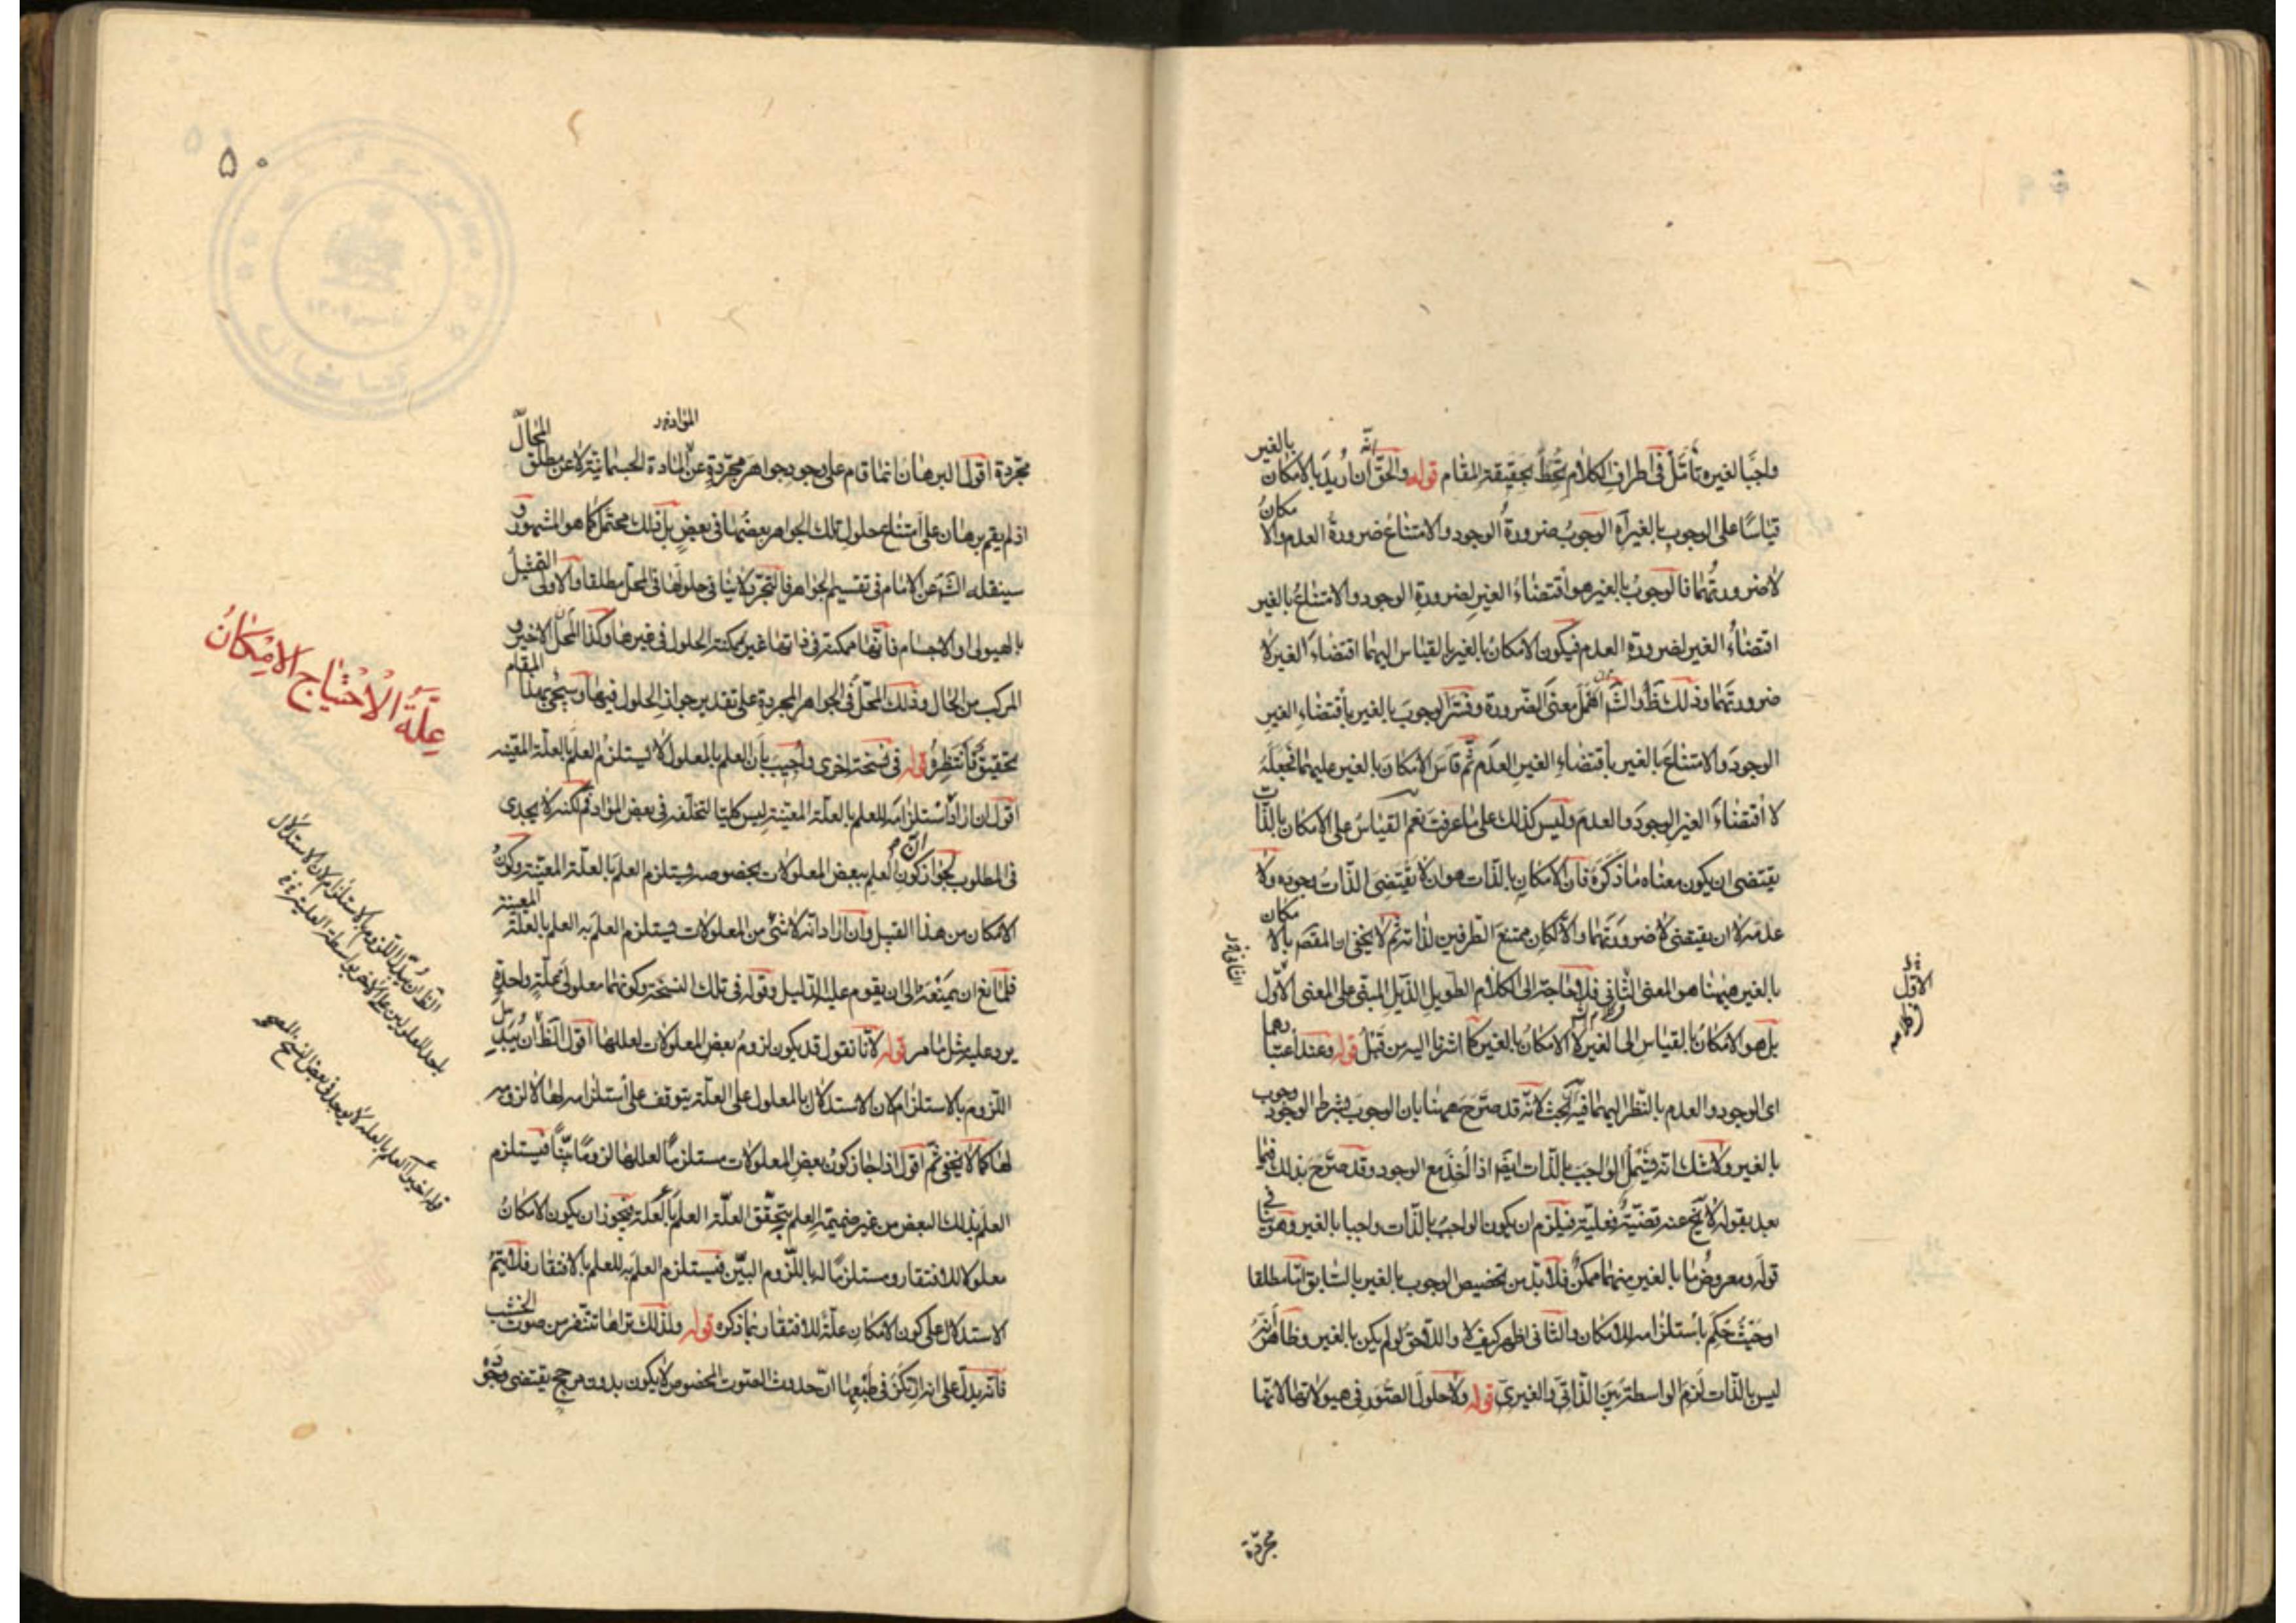 واجبا لغيره تأمّل فى اطراف الكلام تحط بحقيقة المقام قوله والحقّ انه ان اريد بالامكان بالغير
قياسا على الوجوب بالغير آه الوجوب ضرورة الوجود والامتناع ضرورة العدم والامكان
لاضرورتهما فالوجوب بالغير هو اقتضاء الغير لضرورة الوجود والامتناع بالغير
اقتضاء الغير لضرورة العدم فيكون الامكان بالغير بالقياس اليهما اقتضاء الغير لا
ضرورتهما وذلك ظ والشّ اهمل معنى الضّرورة وفسّر الوجوب بالغير باقتضاء الغير
الوجود والامتناع بالغير باقتضاء الغير العدم ثم قاس الامكان بالغير عليهما فجعله
لا اقتضاء الغير الوجود والعدم وليس كذلك على ما عرفت نعم القياس على الامكان بالذّات
يقتضى ان يكون معناه ما ذكره فان الامكان بالذّات هو ان لا يقتضى الذّات وجوده ولا
عدمه لا ان يقتضى لا ضرورتهما والّا لكان ممتنع الطرفين لذاته ثم لا يخفى ان المقصّ بالامكان
بالغير هيهنا هو المعنى الثانى فلا حاجة الى الكلام الطويل الذّيل المبقى على المعنى الاوّل
بل هو الامكان بالقياس الى الغير لا الامكان بالغير كما اشرنا اليه من قبل قوله وعند اعتبارهما
اى الوجود والعدم بالنّظر اليهما فيه بحث لانّه قد صرّح هيهنا بان الوجوب بشرط الوجود وجوب
بالغير ولا شك انه يشمل الواجب بالذّات ايضا اذا اخذ مع الوجود وقد صرّح بذلك فيما
بعد بقوله لا يخ عنه قضيّة فعليّة فيلزم ان يكون الواجب بالذّات واجبا بالغير وهو ينافى
قوله ومعروض ما بالغير منهما ممكن فلا بدّ من تخصيص الوجوب بالغير بالسّابق امّا مطلقا
او حيث حكم باستلزامه للامكان والثّانى اظهر كيف لا واللّاحق لو لم يكن بالغير وظاهر انّه
ليس بالذّات لزم الواسطة بين الذّاتى والغيرى قوله ولا حلول الصّور فى هيولاتها لانّها
مجردة
الاول
مجرّدة اقول البرهان انما قام على وجود جواهر مجرّدة عن المادة الجسمانيّة لا عن مطلق المحالّ
اذ لم يقم برهان على امتناع حلول تلك الجواهر بعضها فى بعض بل ذلك محتمل كما هو المشهور و
سينقله الشّ عن الامام فى تقسيم الجواهر فالتجرّد لا ينافى حلولها فى المحلّ مطلقا والاولى التمثيل
بالهيولى او الاجسام فانّها ممكنة فى ذاتها غير ممكنة الحلول فى غيرها وكذا المحلّ الاخير و
المركب من الحال وذلك المحلّ فى الجواهر المجردة على تقدير جواز الحلول فيها وسيجئ لهذا المقام
تحقيق فانتظره قوله فى نسخة اخرى واجيب بان العلم بالمعلول لا يستلزم العلم بالعلّة المعيّنه
اقول ان اراد ان استلزامه للعلم بالعلّة المعيّنة ليس كليّا لتخلّفه فى بعض الموادّ فم لكنه لا يجدى
فى المطلوب لجواز كون العلم ببعض المعلولات بخصوصه يستلزم العلم بالعلّة المعيّنة وكون
الامكان من هذا القبيل وان اراد انّه لا شئ من المعلولات يستلزم العلم به العلم بالعلّة المعينة
فلمانع ان يمنعه الى ان يقوم عليه الدّليل وقوله فى تلك النسخة وكونهما معلولى علّة واحدة
يرد عليه مثل ما مر قوله لانّا نقول قد يكون لزوم بعض المعلولات لعللها اقول الظ ان يبدل
اللّزوم بالاستلزام لان الاستدلال بالمعلول على العلّة يتوقف على استلزامه لها لا لزومه
لها كما لا يخفى ثمّ اقول اذا جاز كون بعض المعلولات مستلزما لعللها لزوما بيّنا فيستلزم
العلم بذلك البعض من غير ضميمة العلم بتحقّق العلّة العلم بالعلّة فيجوز ان يكون الامكان
معلولا للافتقار ومستلزما له باللّزوم البيّن فيستلزم العلم به للعلم بالافتقار فلا يتم
الاستدلال على كون الامكان علّة للافتقار بما ذكره قوله ولذلك تراها تتنفّر من صوت الخشب
فانّه يدلّ على انه ارتكز فى طبعها انّ حدوث الصّوت المخصوص لا يكون بدون مرجح يقتضى وجوده
علّة الاحتياج الامكان
الظ ان يبدّل اللّزوم بالاستلزام لان الاستدلال
باحد المعلولين على الاخر بواسطة العلية
قوله اخيرا العلم بالعلة لا يوجد فى بعض النسخ
۵۰